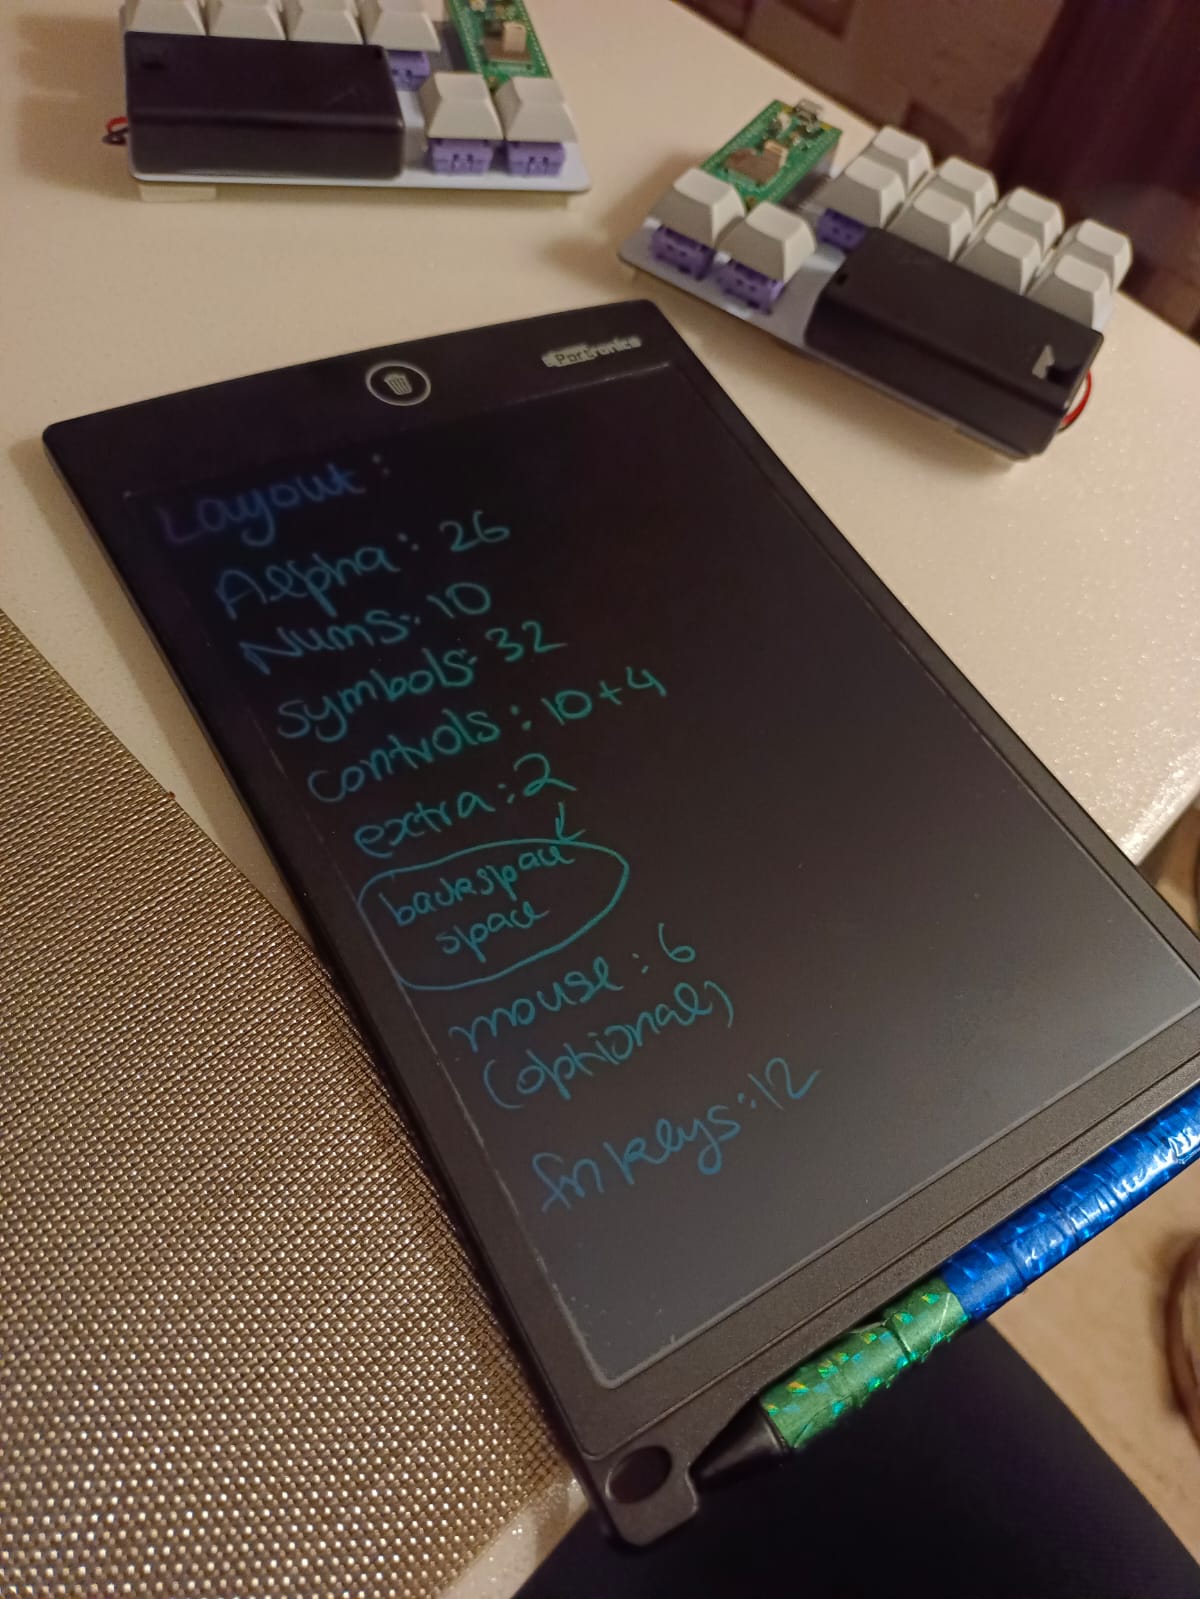 Portronics
Layout:
Alpha: 26
Nums: 10
symbols: 32
controls: 10+4
extra: 2
backspace
space
mouse: 6
(optional)
fn keys: 12